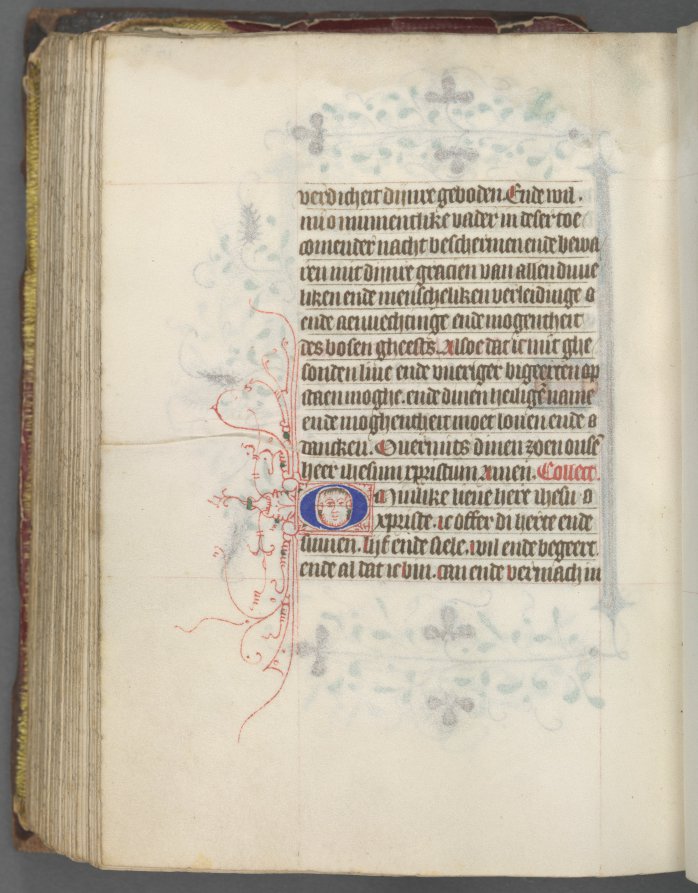 verdichert dijnre geboden. Ende wil
mi o mınnentlike vader in deser toe
comender nacht beschermen ende bewa
ren mit dijnre gracien van allen duue
liken ende menscheliken verleidinge
ende aenvechtinge ende mogentheit
des bosen gheests. Alsoe dat ic mit ghe
sonden liue ende vueriger begeerten op
staen moghe. ende dinen heiligen name
ende moghentheit moet louen ende
dancken. Ouermits dinen zoen onse
heer ihesum xpristum Amen. Collect.
O Mınlike lieue here ihesu
xpriste. ic offer di herte ende
sinnen. lijf ende siele. wil ende begeert
ende al dat ic bin. can ende vermach in